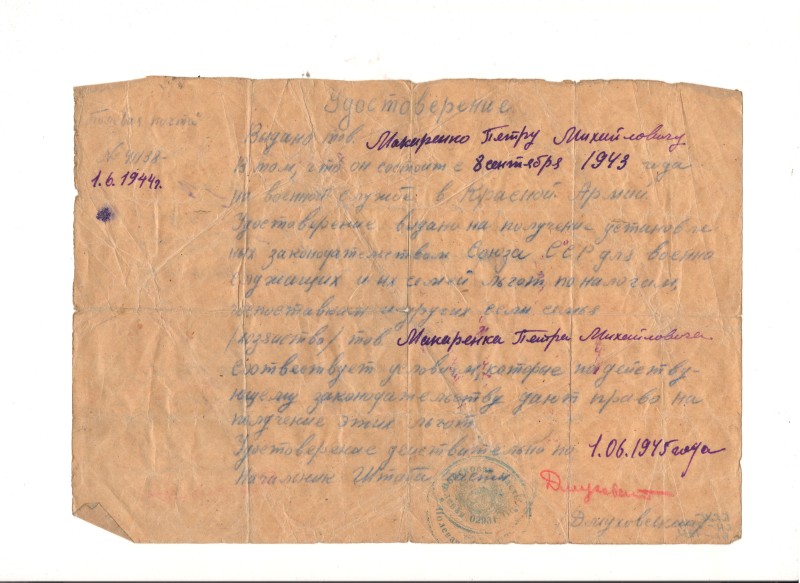 Удостоверение
Полевая почта
№ 41138
1.6.1944г.
Выдано тов. Макаренко Петру Михайловичу
в том, что он состоит с 8 сентября 1943 года
на военной службе в Красной Армии.
Удостоверение выдано на получение установле
ных законодательством Союза ССР для военно
служащих и их семей льгот, по налогам,
и других если семья
/хозяйство/ тов Макаренка Петра Михайловича.
соответствует условиям, которые по действу-
ющему законодательству дают право на
получение этих льгот.
Удостоверение действительно на 1.06.1945 года
Начальник Штаба части
Дмуховский